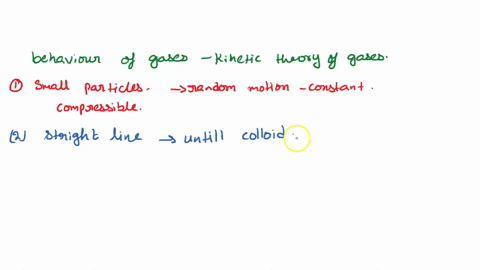 behaviour of gases - Kinetic theory of gases.
① Small particles. → random motion - constant.
compressible.
(2) stright line → untill colloid.